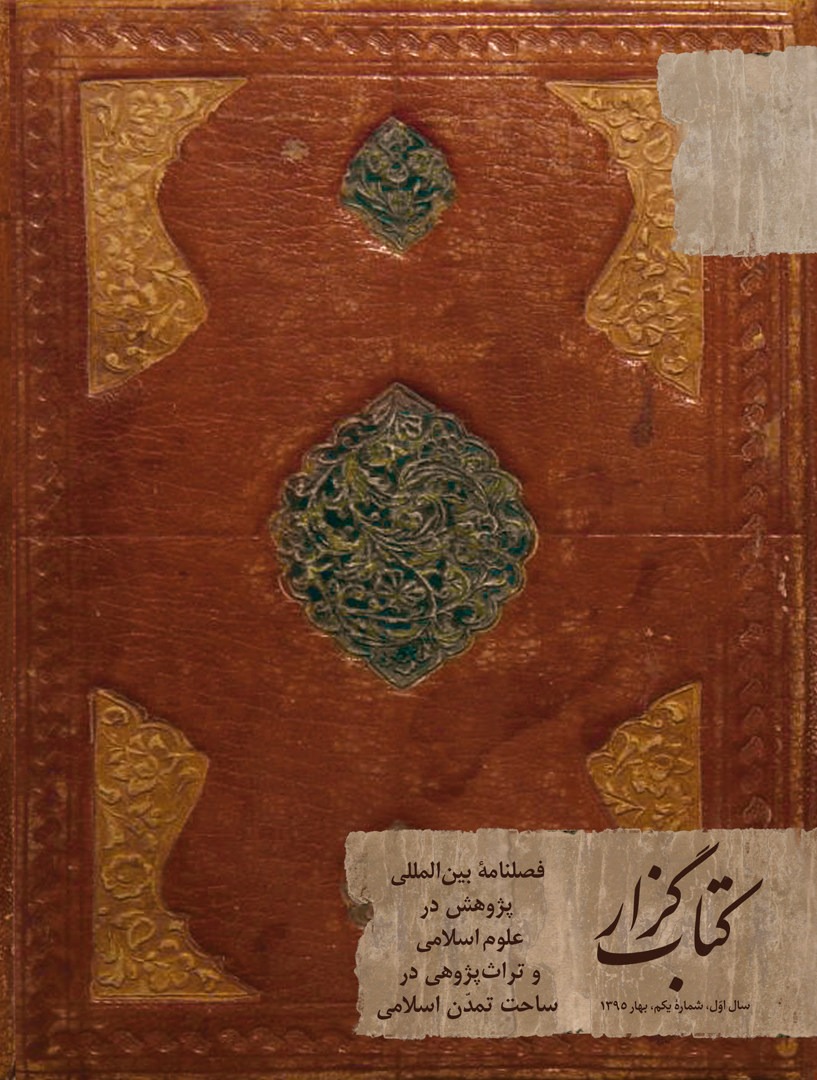 کتاب گزار
سال اوّل، شمارهٔ یکم، بهار ۱۳۹۵
فصلنامهٔ بین‌المللی
پژوهش در
علوم اسلامی
و تراث‌پژوهی در
ساحت تمدّن اسلامی